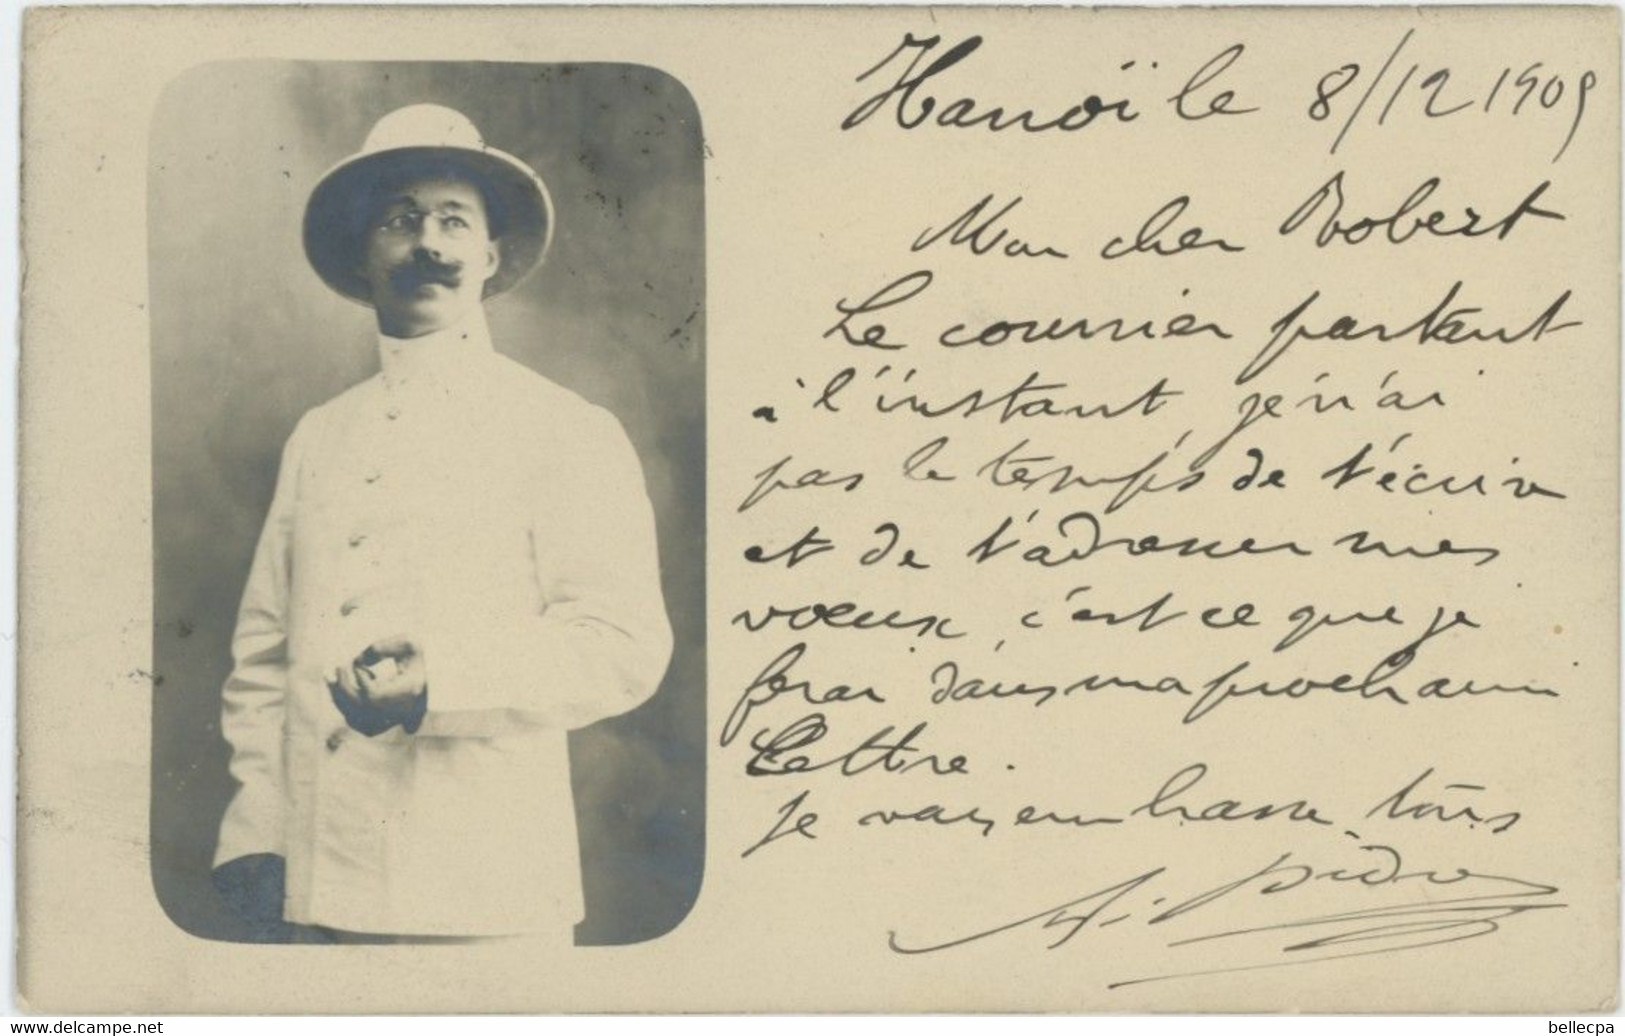 Hanoï le 8/12 1909
Mon cher Robert
Le courrier partant
à l'instant, je n'ai
pas le temps de t'écrire
et de t'adresser mes
voeux, c'est ce que je
ferai dans ma prochaine
lettre.
Je vous embrasse tous
www.delcampe.net
bellecpa